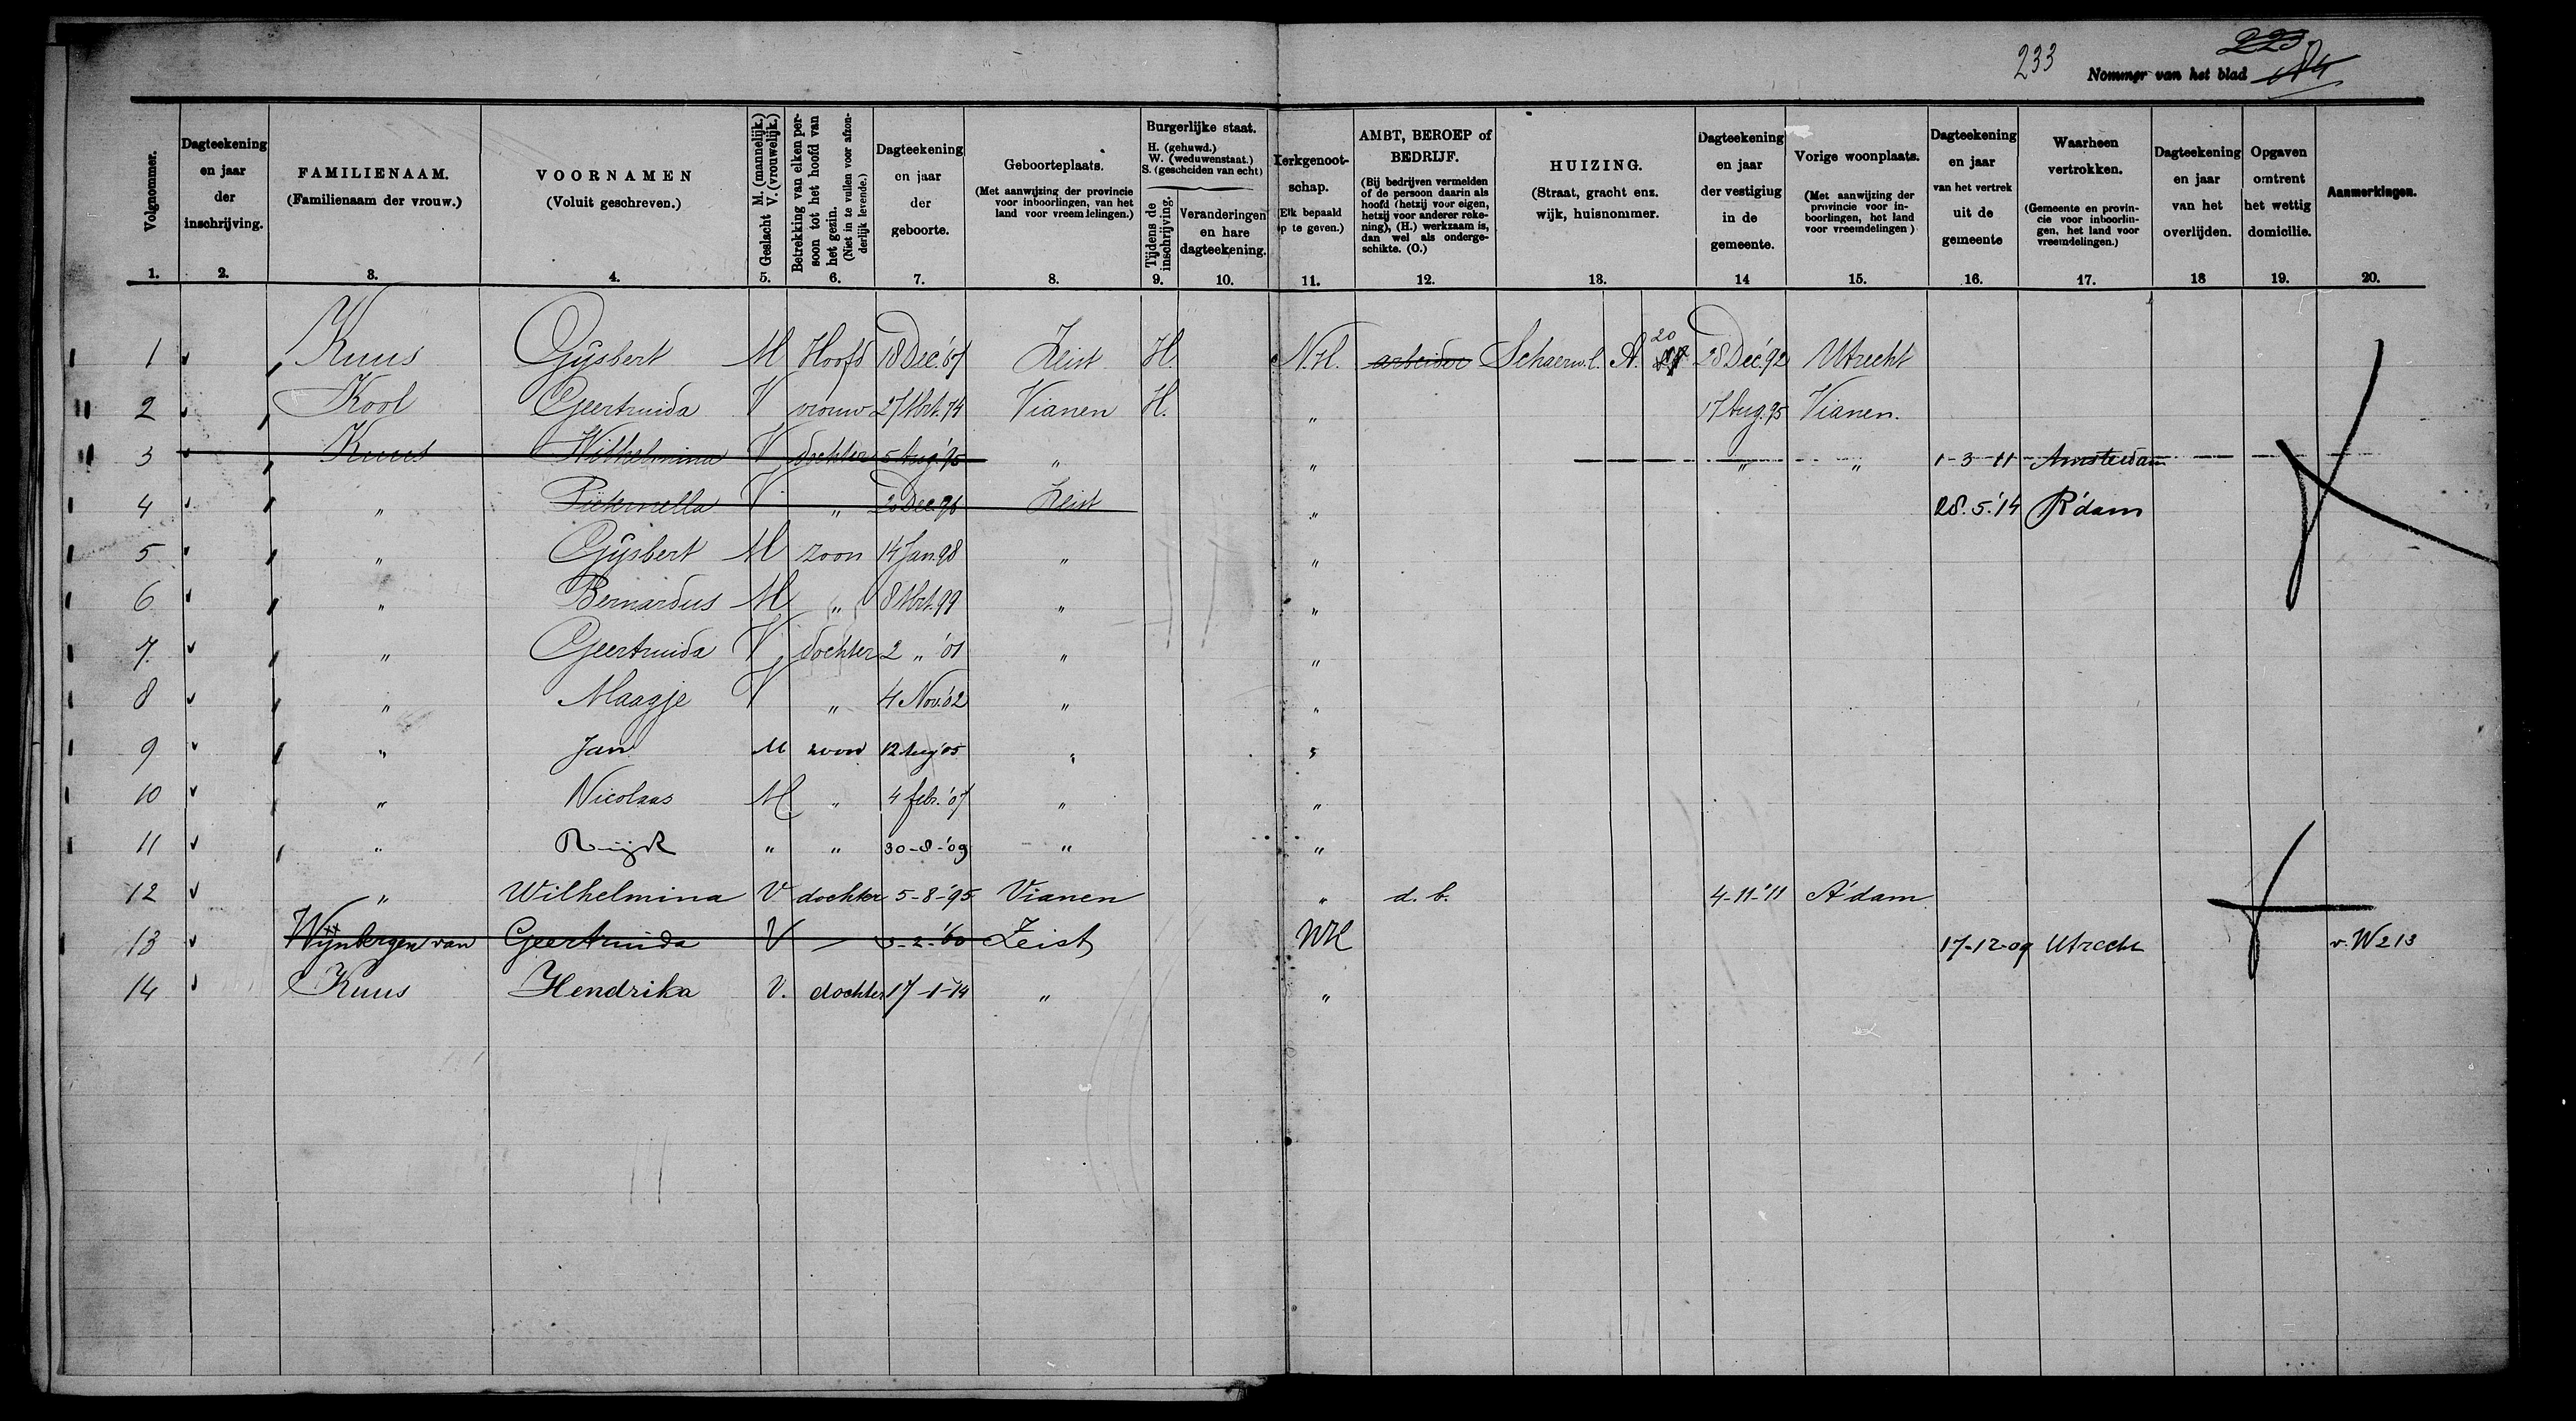 233 Nommer van het blad 223 184
Volgnommer.
Dagteekening en jaar der inschrijving.
FAMILIENAAM. (Familienaam der vrouw.)
VOORNAMEN (Voluit geschreven.)
Geslacht M. (mannelijk.) V. (vrouwelijk.)
Betrekking van elken persoon tot het hoofd van het gezin. (Niet in te vullen voor afzonderlijk levende.)
Dagteekening en jaar der geboorte.
Geboorteplaats. (Met aanwijzing der provincie voor inboorlingen, van het land voor vreemdelingen.)
Burgerlijke staat. H. (gehuwd.) W. (weduwenstaat.) S. (gescheiden van echt)
Tijdens de inschrijving.
Veranderingen en hare dagteekening.
Kerkgenootschap. (Elk bepaald op te geven.)
AMBT, BEROEP of BEDRIJF. (Bij bedrijven vermelden of de persoon daarin als hoofd (hetzij voor eigen, hetzij voor anderer rekening), (H.) werkzaam is, dan wel als ondergeschikte. (O.)
HUIZING. (Straat, gracht enz. wijk, huisnommer.
Dagteekening en jaar der vestiging in de gemeente.
Vorige woonplaats. (Met aanwijzing der provincie voor inboorlingen, het land voor vreemdelingen)
Dagteekening en jaar van het vertrek uit de gemeente
Waarheen vertrokken. (Gemeente en provincie voor inboorlingen, het land voor vreemdelingen.)
Dagteekening en jaar van het overlijden.
Opgaven omtrent het wettig domicilie.
Aanmerkingen.
1. 2. 3. 4. 5. 6. 7. 8. 9. 10. 11. 12. 13. 14 15. 16. 17. 18 19. 20.
1 Kuus Gijsbert M Hoofd 18 Dec. '67 Zeist H. N.H. arbeider Schaerw.l. A. 20 28 Dec. '92 Utrecht
2 Kool Geertruida V vrouw 27 Mrt. 74 Vianen H. " 17 Aug. 95 Vianen.
3 Kuus Wilhelmina V dochter 5 Aug '95 " " " " 1-3-11 Amsterdam
4 " Pieternella V " 20 Dec. 96 Zeist " 28.5.'14 R'dam
5 " Gijsbert M zoon 14 Jan. 98 " "
6 " Bernardus M " 8 Mrt. 99 " "
7. " Geertruida V dochter 2 " '01 " "
8 " Maagje V " 4 Nov. '02 " "
9 " Jan M zoon 12 Aug '05 " "
10 " Nicolaas M " 4 febr. '07 " "
11 " Ruijk " " 30-8-'09 " "
12 " Wilhelmina V dochter 5-8-'95 Vianen " d. b. 4-11-'11 A'dam
13 Wijnbergen van Geertruida V -2-'60 Zeist NH 17-12-09 Utrecht v. W 213
14 Kuus Hendrika V. dochter 17-1-'14 " "